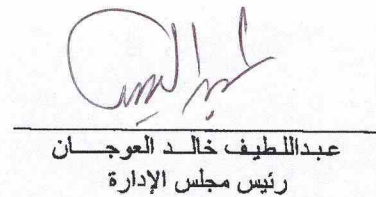 عبداللطيف خالد العوجان
رئيس مجلس الإدارة